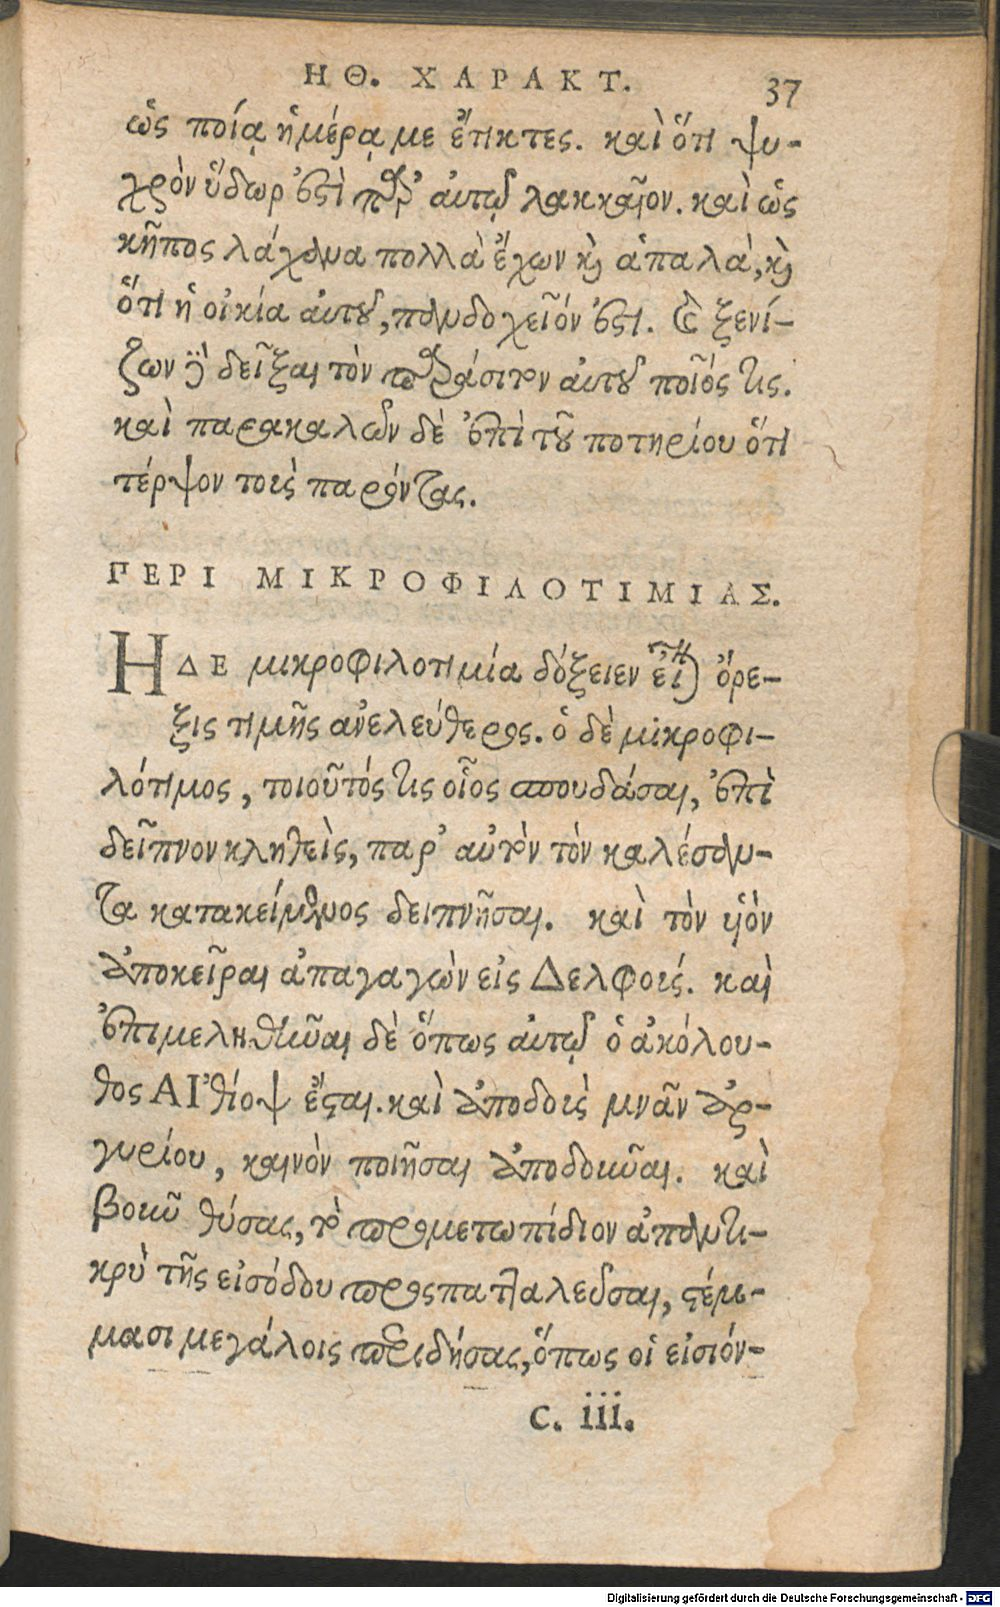 ΗΘ. ΧΑΡΑΚΤ. 37
ὡς ποίᾳ ἡμέρᾳ με ἔτικτες. καὶ ὅτι ψυ-
χρὸν ὕδωρ ἐστὶ παρ' αὐτῷ λακκαῖον. καὶ ὡς
κῆπος λάχανα πολλὰ ἔχων καὶ ἁπαλὰ, καὶ
ὅτι ἡ οἰκία αὐτοῦ, πανδοχεῖόν ἐστι. καὶ ξενί-
ζων δὲ δεῖξαι τὸν παράσιτον αὐτοῦ ποῖός τις.
καὶ παρακαλῶν δὲ ἐπὶ τοῦ ποτηρίου ὅτι
τέρψον τοὺς παρόντας.
ΠΕΡΙ ΜΙΚΡΟΦΙΛΟΤΙΜΙΑΣ.
Η ΔΕ μικροφιλοτιμία δόξειεν εἶναι ὄρε-
ξις τιμῆς ἀνελεύθερος. ὁ δὲ μικροφι-
λότιμος, τοιοῦτός τις οἷος σπουδάσαι, ἐπὶ
δεῖπνον κληθεὶς, παρ' αὐτὸν τὸν καλέσαν-
τα κατακείμενος δειπνῆσαι. καὶ τὸν υἱὸν
ἀποκεῖραι ἀπαγαγὼν εἰς Δελφούς. καὶ
ἐπιμεληθῆναι δὲ ὅπως αὐτῷ ὁ ἀκόλου-
θος ΑΙ᾿θίοψ ἔσται. καὶ ἀποδοὺς μνᾶν ἀρ-
γυρίου, καινὸν ποιῆσαι ἀποδοῦναι. καὶ
βοῦν θύσας, τὸ προμετωπίδιον ἀπαντι-
κρὺ τῆς εἰσόδου προσπατταλεῦσαι, στέμ-
μασι μεγάλοις περιδήσας, ὅπως οἱ εἰσιόν-
c. iii.
Digitalisierung gefördert durch die Deutsche Forschungsgemeinschaft - DFG